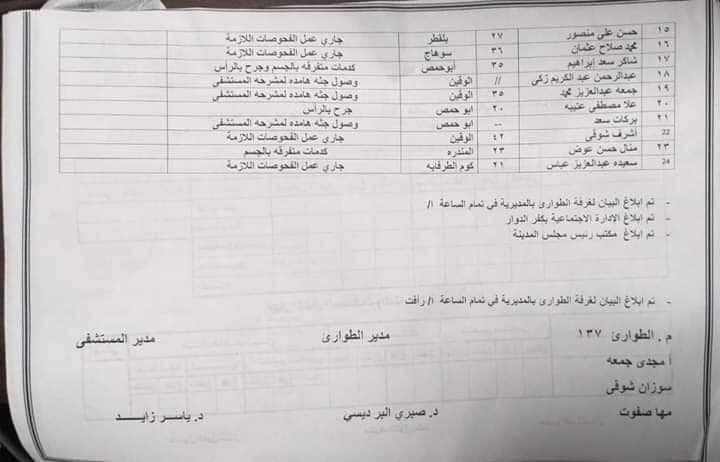 ١٥ حسن على منصور ٢٧ بلقطر جاري عمل الفحوصات اللازمة
١٦ محمد صلاح عثمان ٣٦ سوهاج جاري عمل الفحوصات اللازمة
١٧ شاكر سعد ابراهيم ٣٥ أبوحمص كدمات متفرقه بالجسم وجرح بالرأس
١٨ عبدالرحمن عبد الكريم زكى // الوفين وصول جثه هامده لمشرحه المستشفى
١٩ جمعه عبدالعزيز محمد ٣٥ الوفين وصول جثه هامده لمشرحه المستشفى
٢٠ علا مصطفى عتيبه ٢٠ ابو حمص جرح بالرأس
٢١ بركات سعد -- ابو حمص وصول جثه هامده لمشرحه المستشفى
22 أشرف شوقى ٤٢ الوفين جاري عمل الفحوصات اللازمة
٢٣ منال حسن عوض ٢٣ المندره كدمات متفرقه بالجسم
24 سعيده عبدالعزيز عباس ٢١ كوم الطرفايه جاري عمل الفحوصات اللازمة
- تم ابلاغ البيان لغرفة الطوارئ بالمديرية في تمام الساعة ا/
- تم ابلاغ الادارة الاجتماعية بكفر الدوار
- تم ابلاغ مكتب رئيس مجلس المدينة
- تم ابلاغ البيان لغرفة الطوارئ بالمديرية في تمام الساعة ا/ رأفت
م . الطوارئ ١٣٧ مدير الطوارئ مدير المستشفى
أ مجدى جمعه
سوزان شوقى
مها صفوت د. صبري البرديسي د. ياسر زايد